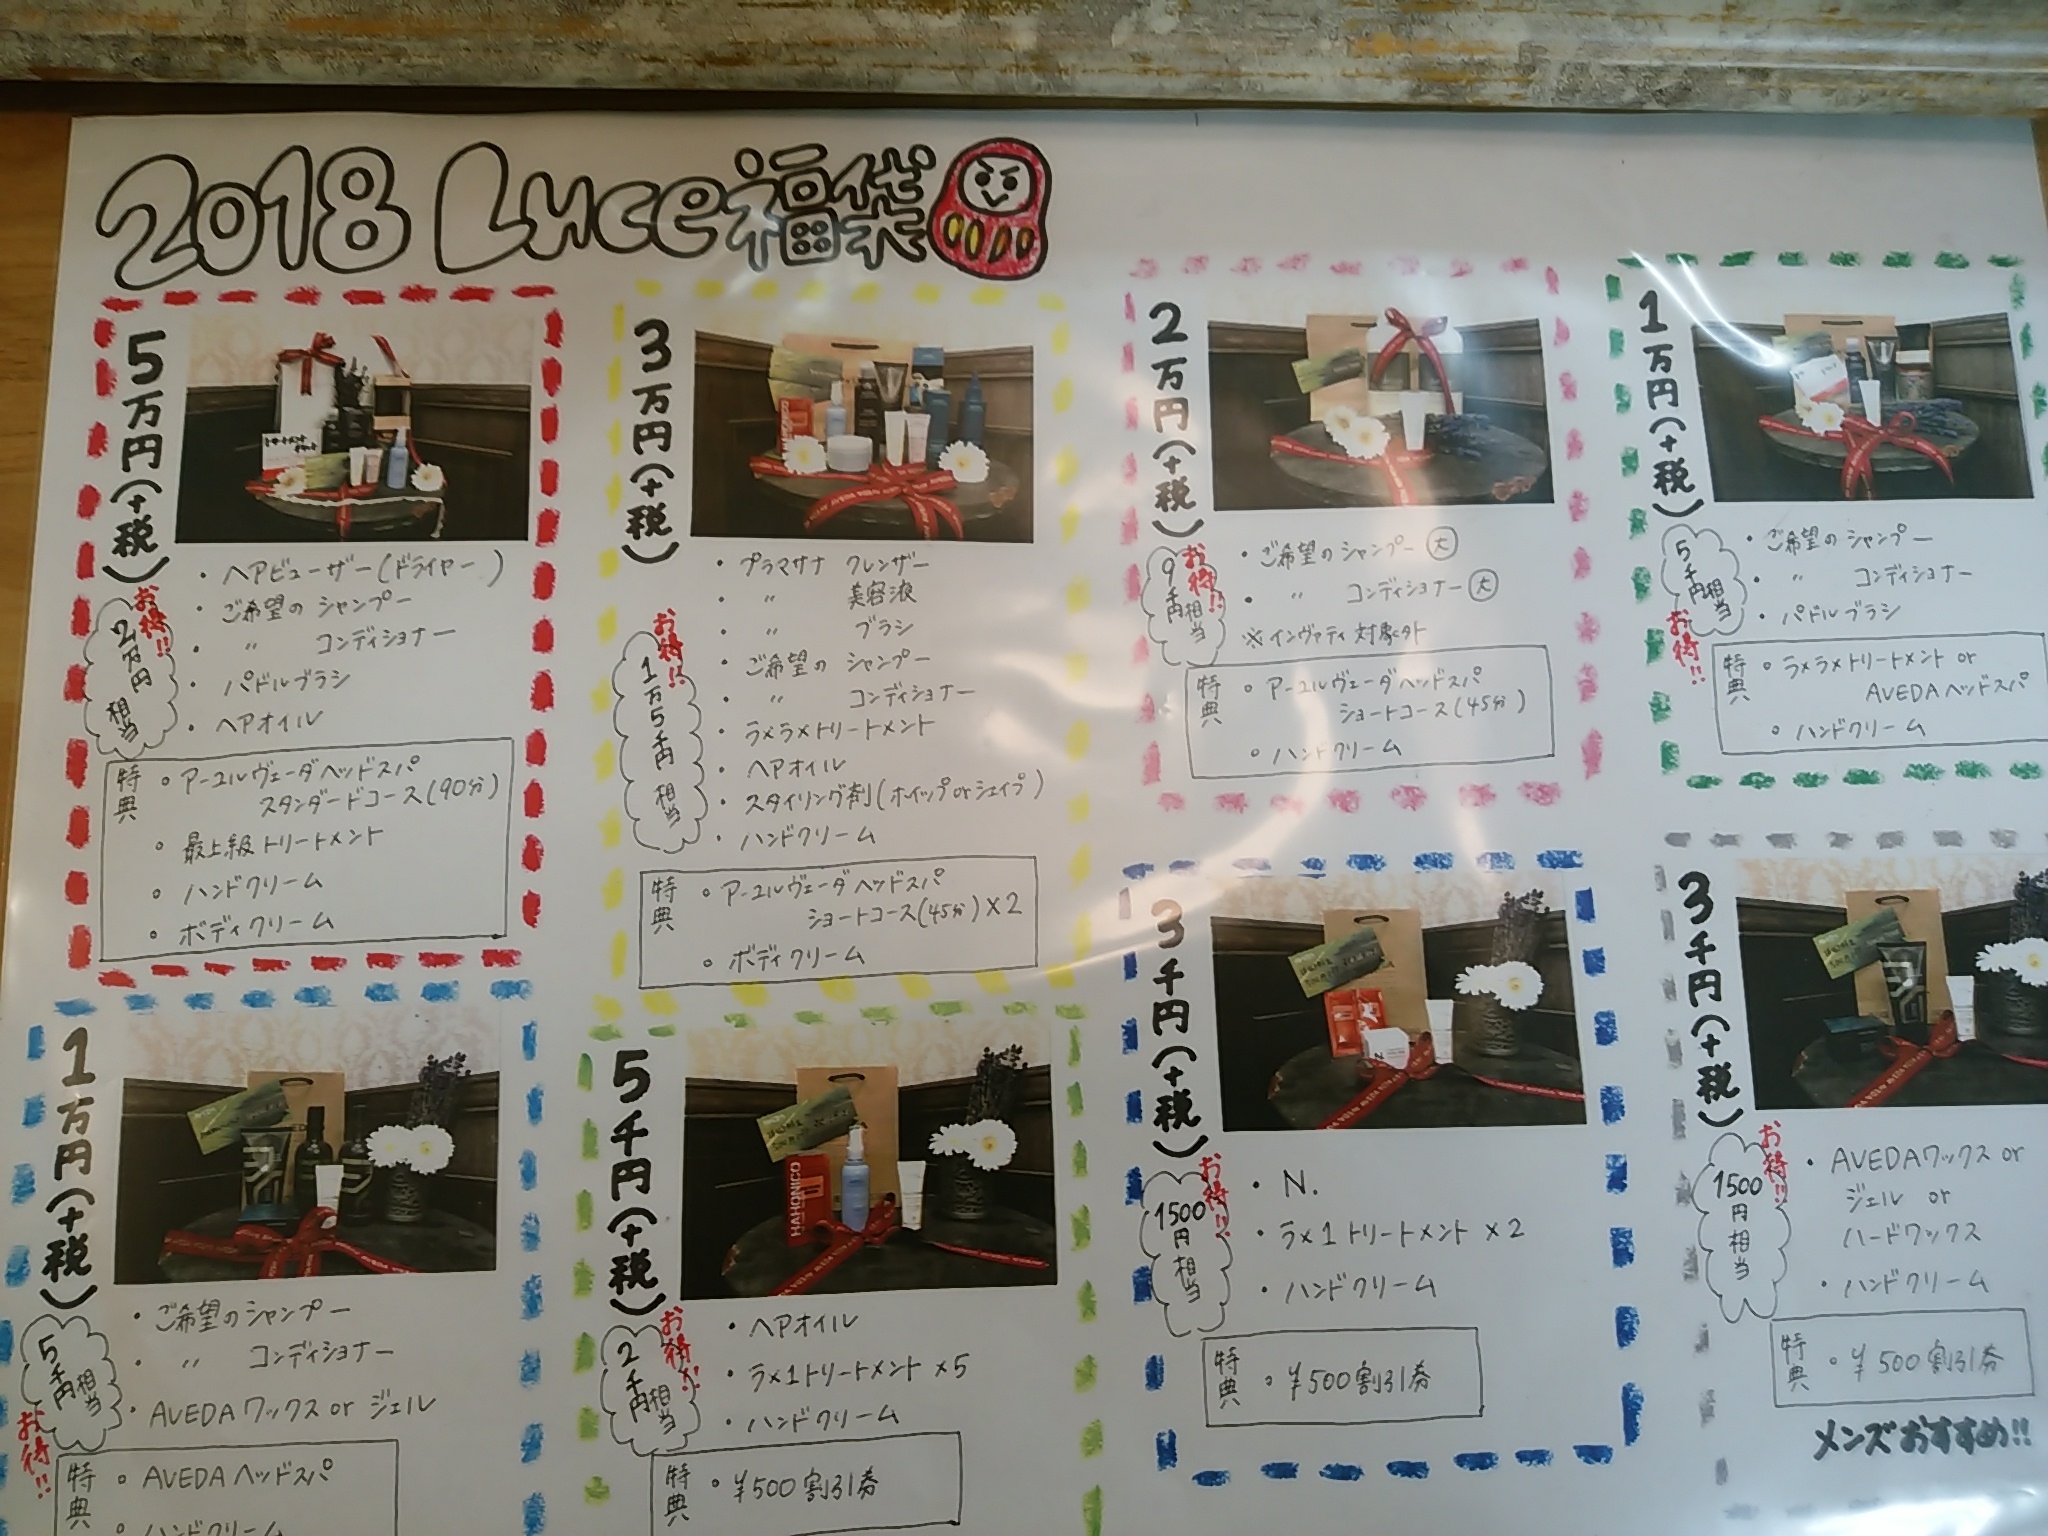 2018 Luce福袋
5万円(+税)
お得!!
2万円相当
・ヘアビューザー(ドライヤー)
・ご希望のシャンプー
・〃 コンディショナー
・パドルブラシ
・ヘアオイル
特典
○アーユルヴェーダヘッドスパ
スタンダードコース(90分)
○最上級トリートメント
○ハンドクリーム
○ボディクリーム
3万円(+税)
お得!!
1万5千円相当
・プラマサナ クレンザー
・〃 美容液
・〃 ブラシ
・ご希望の シャンプー
・〃 コンディショナー
・ラメラメトリートメント
・ヘアオイル
・スタイリング剤(ホイップorシェイプ)
・ハンドクリーム
特典
○アーユルヴェーダヘッドスパ
ショートコース(45分)×2
○ボディクリーム
2万円(+税)
お得!!
9千円相当
・ご希望のシャンプー(大)
・〃 コンディショナー(大)
※インヴァティ対象外
特典
○アーユルヴェーダヘッドスパ
ショートコース(45分)
○ハンドクリーム
1万円(+税)
5千円相当
お得!!
・ご希望のシャンプー
・〃 コンディショナー
・パドルブラシ
特典
○ラメラメトリートメント or
AVEDAヘッドスパ
○ハンドクリーム
1万円(+税)
5千円相当
お得!!
・ご希望のシャンプー
・〃 コンディショナー
・AVEDAワックス or ジェル
特典
○AVEDAヘッドスパ
○ハンドクリーム
5千円(+税)
お得!!
2千円相当
HAHONICO
・ヘアオイル
・ラメ1トリートメント ×5
・ハンドクリーム
特典
○¥500割引券
3千円(+税)
お得!!
1500円相当
・N.
・ラメ1トリートメント ×2
・ハンドクリーム
特典
○¥500割引券
3千円(+税)
お得!!
1500円相当
・AVEDAワックス or
ジェル or
ハードワックス
・ハンドクリーム
特典
○¥500割引券
メンズおすすめ!!